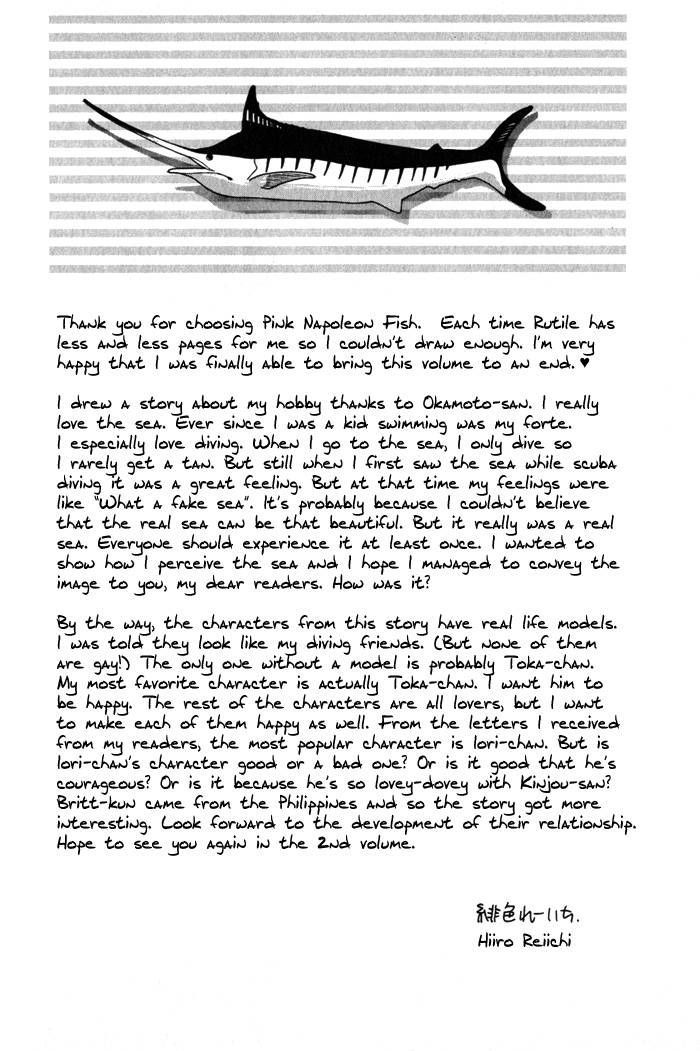 Thank you for choosing Pink Napoleon Fish. Each time Rutile has
less and less pages for me so I couldn't draw enough. I'm very
happy that I was finally able to bring this volume to an end.♥
I drew a story about my hobby thanks to Okamoto-san. I really
love the sea. Ever since I was a kid swimming was my forte.
I especially love diving. When I go to the sea, I only dive so
I rarely get a tan. But still when I first saw the sea while scuba
diving it was a great feeling. But at that time my feelings were
like "What a fake sea". It's probably because I couldn't believe
that the real sea can be that beautiful. But it really was a real
sea. Everyone should experience it at least once. I wanted to
show how I perceive the sea and I hope I managed to convey the
image to you, my dear readers. How was it?
By the way, the characters from this story have real life models.
I was told they look like my diving friends. (But none of them
are gay!) The only one without a model is probably Toka-chan.
My most favorite character is actually Toka-chan. I want him to
be happy. The rest of the characters are all lovers, but I want
to make each of them happy as well. From the letters I received
from my readers, the most popular character is Iori-chan. But is
Iori-chan's character good or a bad one? Or is it good that he's
courageous? Or is it because he's so lovey-dovey with Kinjou-san?
Britt-kun came from the Philippines and so the story got more
interesting. Look forward to the development of their relationship.
Hope to see you again in the 2nd volume.
緋色れーいち.
Hiiro Reiichi